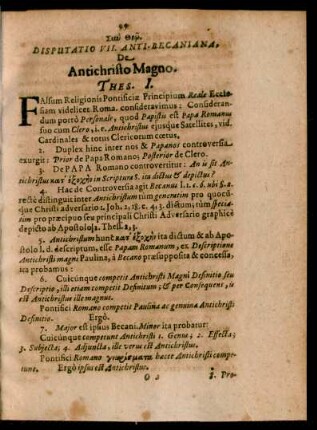 Σὺν Θεῷ.
DISPUTATIO VII. ANTI-BECANIANA,
De
Antichristo Magno.
THES. I.
FAlsum Religionis Pontificiæ Principium Reale Eccle-
siam videlicet Roma. consideravimus: Consideran-
dum porrò Personale, quod Papistis est Papa Romanus
suo cum Clero, i. e. Antichristus ejusque Satellites, vid.
Cardinales & totus Clericorum cœtus,
2. Duplex hinc inter nos & Papanos controversia
exurgit: Prior de Papa Romano; Posterior de Clero.
3. De PAPA Romano controvertitur: An is sit An-
tichristus κατ᾽ ἐξοχὴν in Scriptura S. ita dictus & depictus?
Hac de Controversia agit Becanus
rectè distinguit inter Antichristum tùm generatim pro quocun-
que Christi adversario 1. Joh. 2, 18. c. 4, 3. dictum; tùm speciá-
tim pro præcipuo seu principali Christi Adversario graphicè
depicto ab Apostolo 2. Thess. 2, 3.
5. Antichristum hunc κατ᾽ ἐξοχὴν ita dictum & ab Apo-
stolo l. d. descriptum, esse Papam Romanum, ex Descriptione
Antichristi magni Paulina, à Becano præsupposita & concessa,
ita probamus:
6. Cuicunque competit Antichristi Magni Definitio seu
Descriptio, illi etiam competit Definitum; & per Consequens, is
est Antichristus ille magnus.
Pontifici Romano competit Paulina ac genuina Antichristi
Definitio. Ergò.
7. Major est ipsius Becani. Minor ita probatur:
Cuicunque competunt Antichristi 1. Genus; 2. Effecta;
3. Subjecta; 4. Adjuncta, ille verus est Antichristus.
Pontifici Romano γνωρίσματα haece Antichristi compe-
tunt. Ergò ipsus est Antichristus.